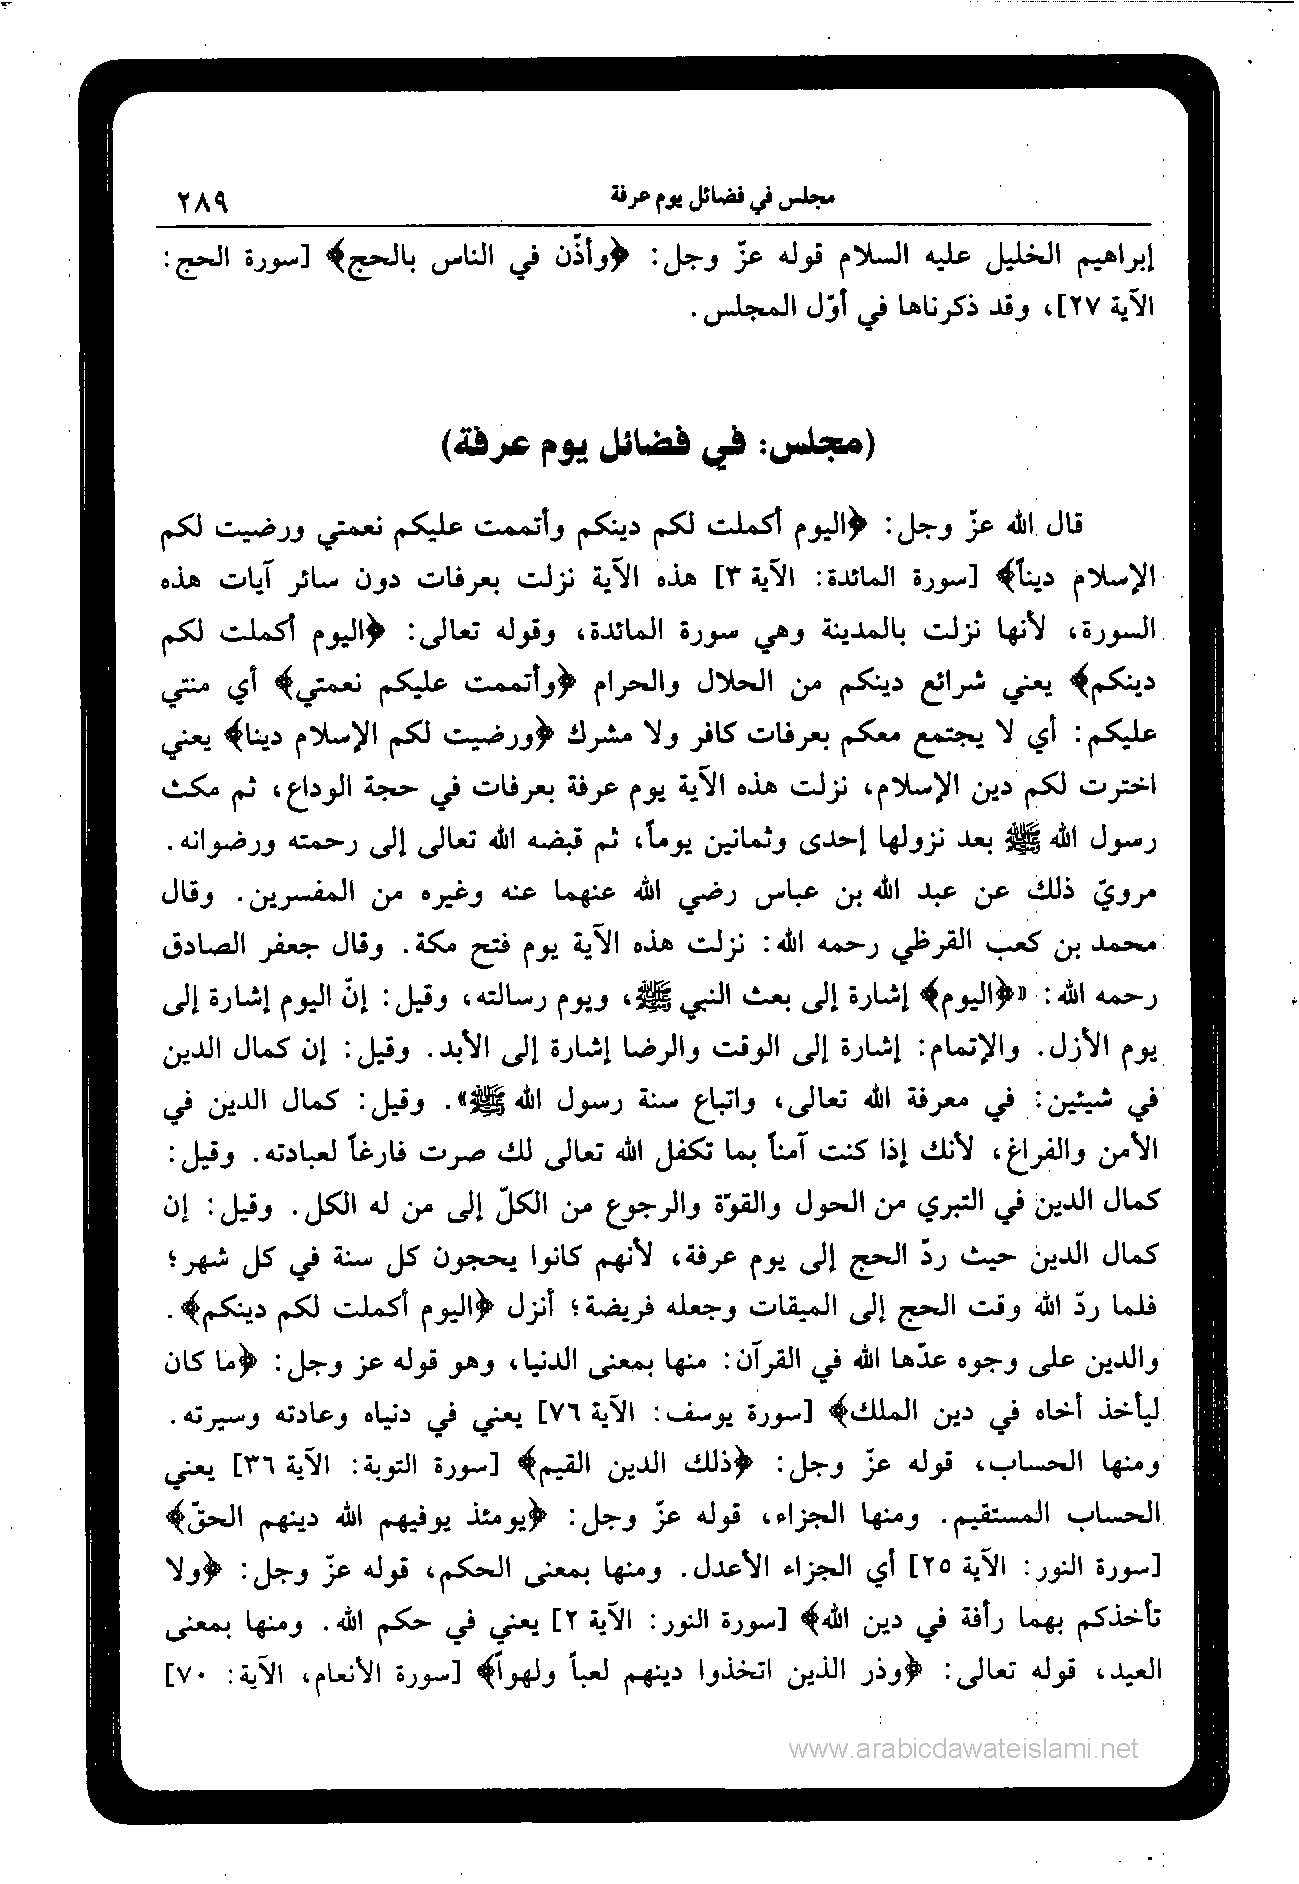 مجلس في فضائل يوم عرفة ٢٨٩
إبراهيم الخليل عليه السلام قوله عزّ وجل: ﴿وأذّن في الناس بالحج﴾ [سورة الحج:
الآية ٢٧]، وقد ذكرناها في أوّل المجلس.
(مجلس: في فضائل يوم عرفة)
قال الله عزّ وجل: ﴿اليوم أكملت لكم دينكم وأتممت عليكم نعمتي ورضيت لكم
الإسلام ديناً﴾ [سورة المائدة: الآية ٣] هذه الآية نزلت بعرفات دون سائر آيات هذه
السورة، لأنها نزلت بالمدينة وهي سورة المائدة، وقوله تعالى: ﴿اليوم أكملت لكم
دينكم﴾ يعني شرائع دينكم من الحلال والحرام ﴿وأتممت عليكم نعمتي﴾ أي منتي
عليكم: أي لا يجتمع معكم بعرفات كافر ولا مشرك ﴿ورضيت لكم الإسلام دينا﴾ يعني
اخترت لكم دين الإسلام، نزلت هذه الآية يوم عرفة بعرفات في حجة الوداع، ثم مكث
رسول الله ﷺ بعد نزولها إحدى وثمانين يوماً، ثم قبضه الله تعالى إلى رحمته ورضوانه.
مرويّ ذلك عن عبد الله بن عباس رضي الله عنهما عنه وغيره من المفسرين. وقال
محمد بن كعب القرظي رحمه الله: نزلت هذه الآية يوم فتح مكة. وقال جعفر الصادق
رحمه الله: «﴿اليوم﴾ إشارة إلى بعث النبي ﷺ، ويوم رسالته، وقيل: إنّ اليوم إشارة إلى
يوم الأزل. والإتمام: إشارة إلى الوقت والرضا إشارة إلى الأبد. وقيل: إن كمال الدين
في شيئين: في معرفة الله تعالى، واتباع سنة رسول الله ﷺ». وقيل: كمال الدين في
الأمن والفراغ، لأنك إذا كنت آمناً بما تكفل الله تعالى لك صرت فارغاً لعبادته. وقيل:
كمال الدين في التبري من الحول والقوّة والرجوع من الكلّ إلى من له الكل. وقيل: إن
كمال الدين حيث ردّ الحج إلى يوم عرفة، لأنهم كانوا يحجون كل سنة في كل شهر؛
فلما ردّ الله وقت الحج إلى الميقات وجعله فريضة؛ أنزل ﴿اليوم أكملت لكم دينكم﴾.
والدين على وجوه عدّها الله في القرآن: منها بمعنى الدنيا، وهو قوله عز وجل: ﴿ما كان
ليأخذ أخاه في دين الملك﴾ [سورة يوسف: الآية ٧٦] يعني في دنياه وعادته وسيرته.
ومنها الحساب، قوله عزّ وجل: ﴿ذلك الدين القيم﴾ [سورة التوبة: الآية ٣٦] يعني
الحساب المستقيم. ومنها الجزاء، قوله عزّ وجل: ﴿يومئذ يوفيهم الله دينهم الحقّ﴾
[سورة النور: الآية ٢٥] أي الجزاء الأعدل. ومنها بمعنى الحكم، قوله عزّ وجل: ﴿ولا
تأخذكم بهما رأفة في دين الله﴾ [سورة النور: الآية ٢] يعني في حكم الله. ومنها بمعنى
العيد، قوله تعالى: ﴿وذر الذين اتخذوا دينهم لعباً ولهواً﴾ [سورة الأنعام، الآية: ٧٠]
www.arabicdawateislami.net